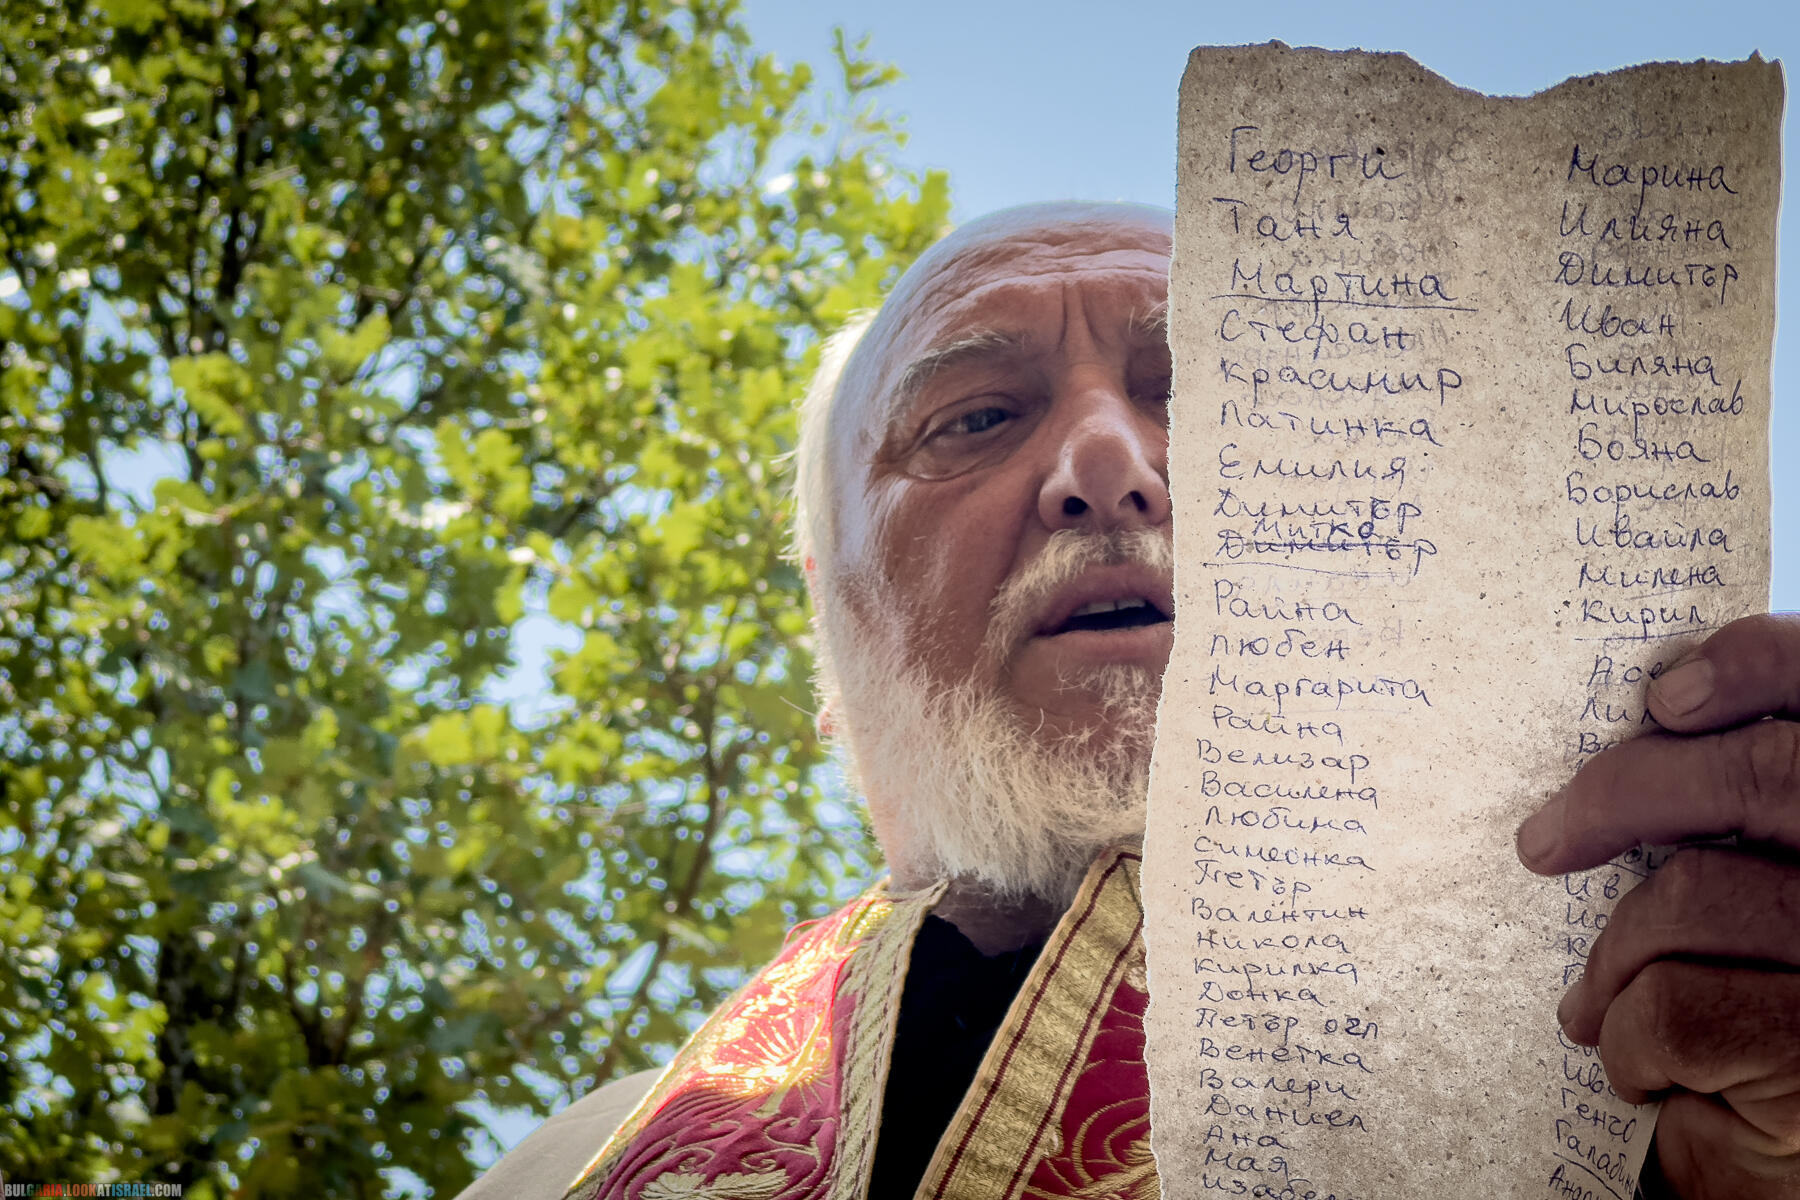 Георги
Таня
Мартина
Стефан
Красимир
Латинка
Емилия
Димитър
Митко
Димитър
Райна
Любен
Маргарита
Райна
Велизар
Василена
Любима
Симеонка
Петър
Валентин
Никола
Кирилка
Донка
Петър
Венетка
Валери
Даниел
Ана
Мая
Марина
Илияна
Димитър
Иван
Биляна
Мирослав
Бояна
Борислав
Ивайла
Милена
Кирил
Генчо
BULGARIA.LOOKATISRAEL.COM